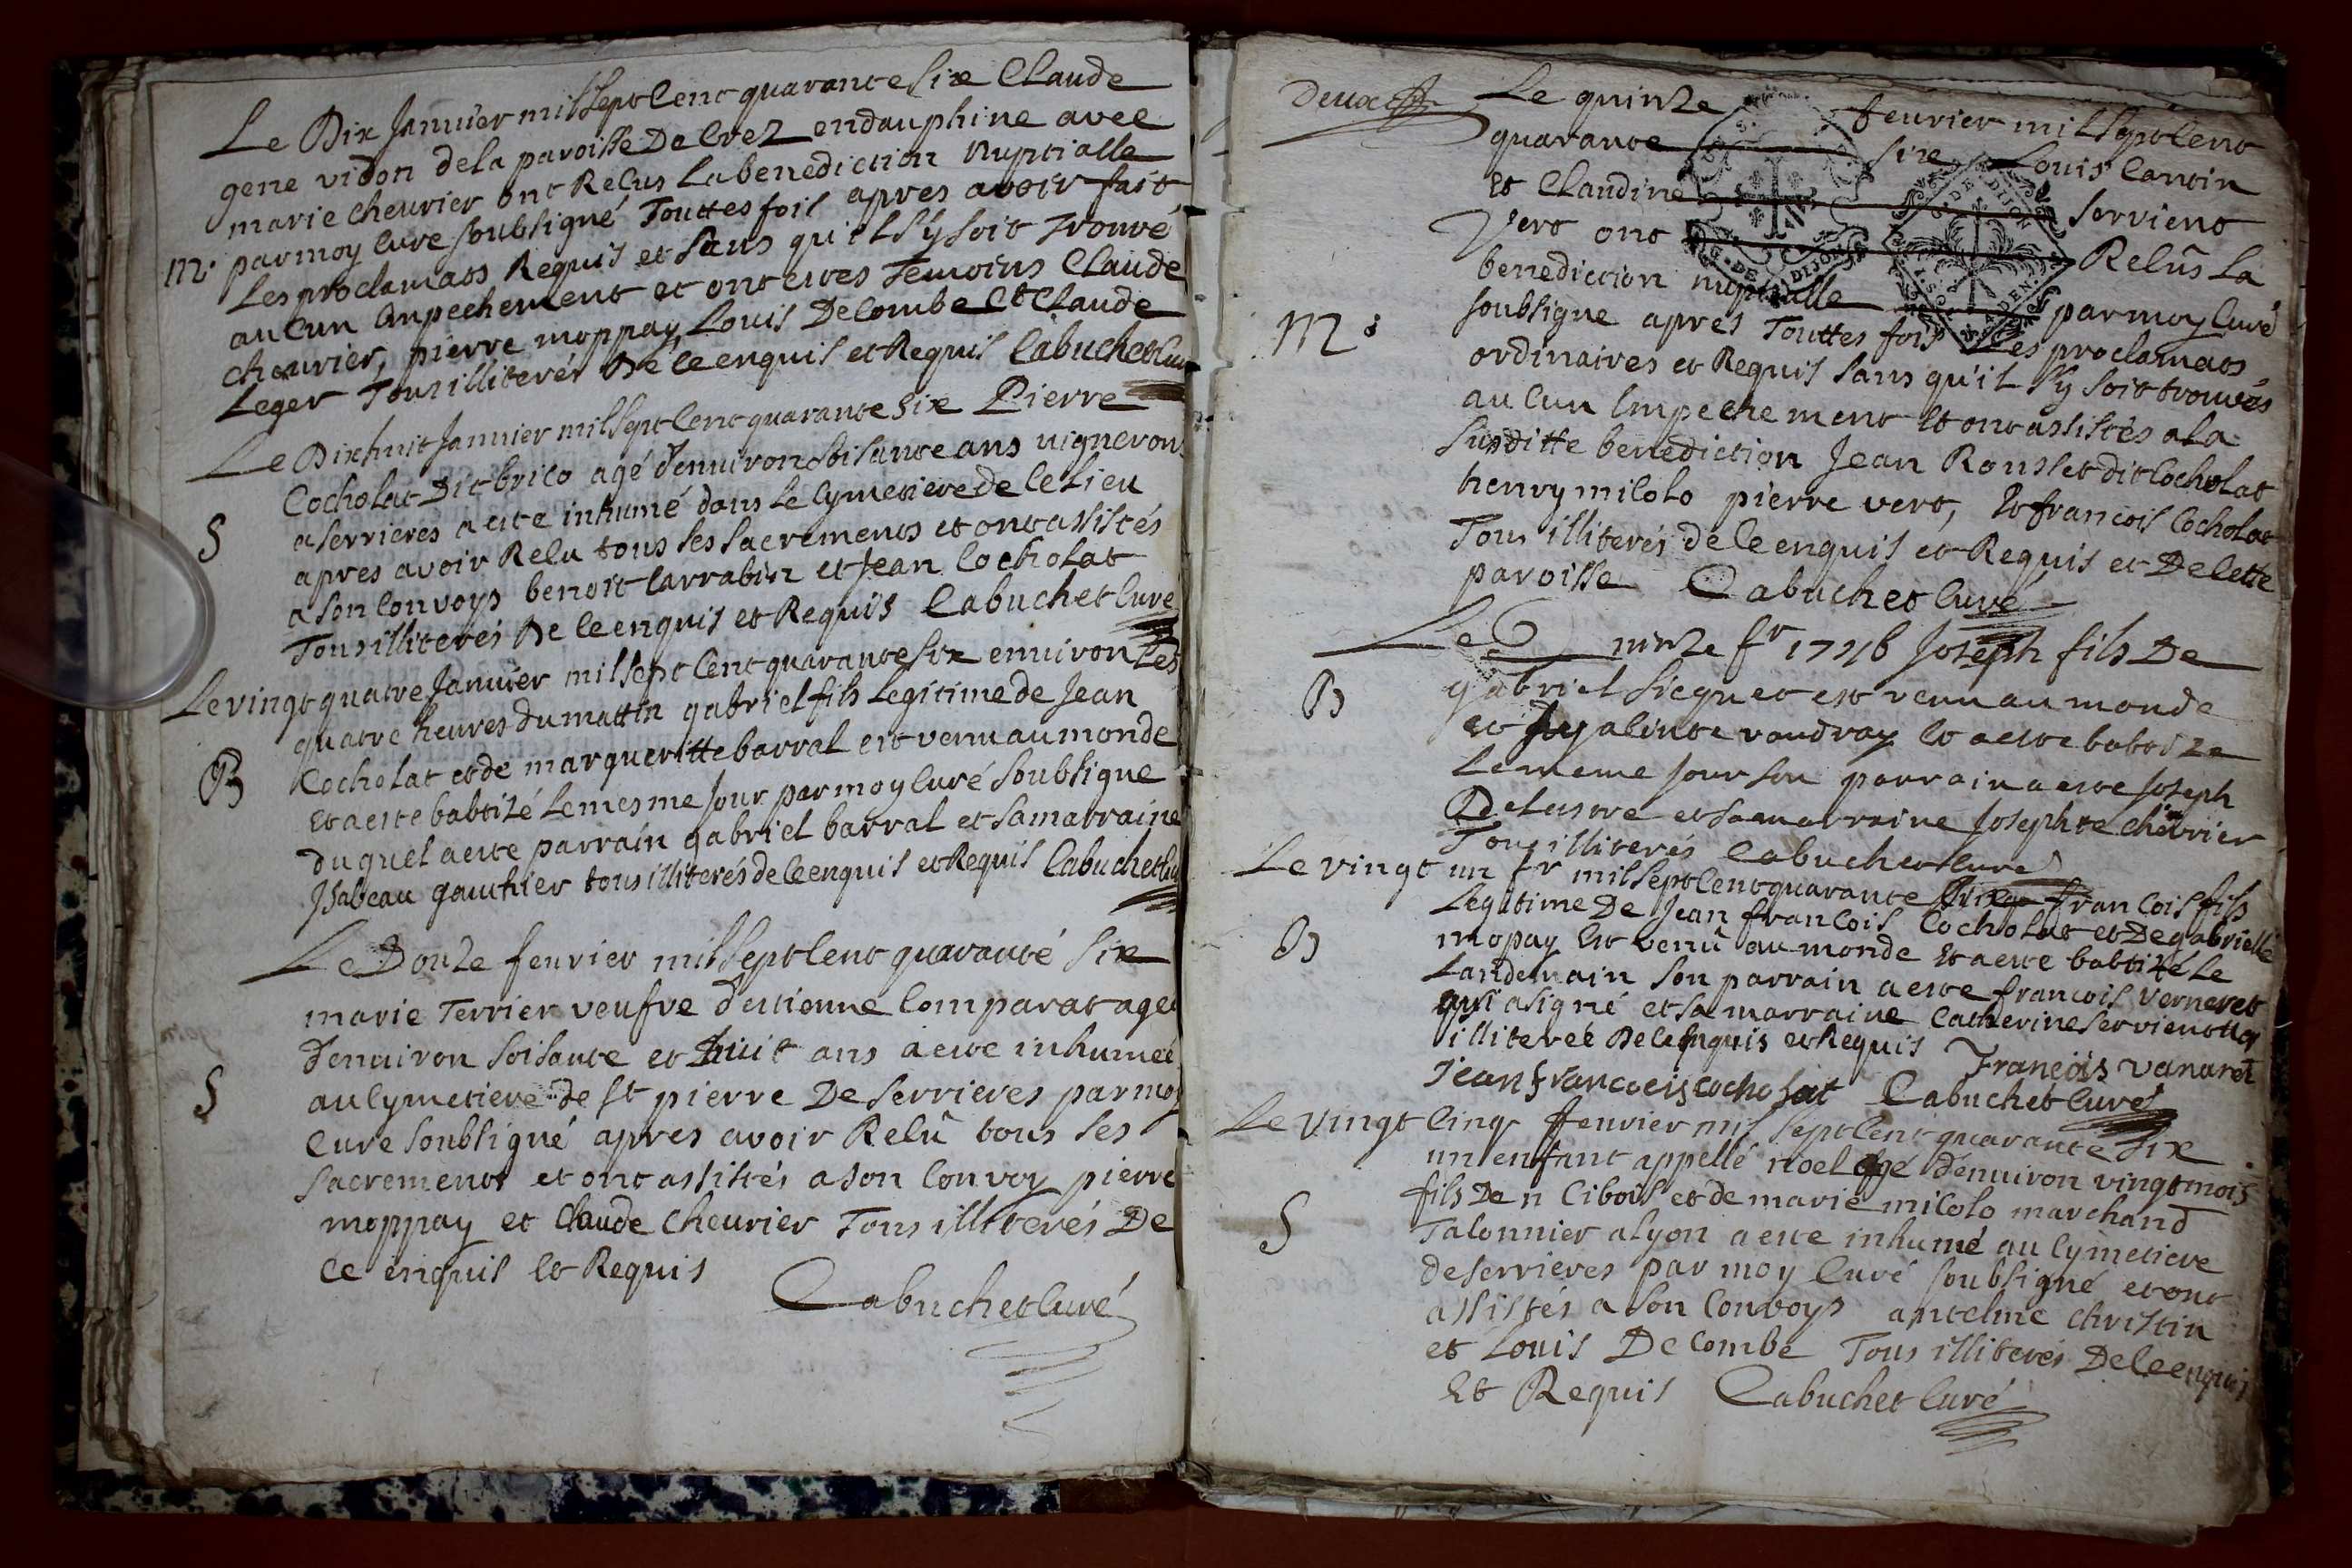 Le Dix Janvier mil sept Cent quarante six Claude
gene vidon de la paroisse De Crez en dauphine avec
marie chevrier ont Relus La benediction Nuptialle
M. par moy Curé soubsigné Touttes fois apres avoir fait
Les proclamaos Requis et sans qu'il s'y soit trouvé
aucun Empechement et ont estes Temoins Claude
chevrier, pierre moppay, Louis Decombe Et Claude
Leger Tous illiterés De ce enquis et Requis Cabuchet Curé
Le Dixhuit Janvier mil sept Cent quarante six Pierre
Cocholat Dit brico agé d'environ soisante ans vigneron
S
a serrieres a este inhumé dans Le Cymetiere de ce Lieu
apres avoir Relu tous ses sacrements et ont assistés
a son Convoys benoit Carrabin et Jean Cocholat
Tous illiterés De ce enquis et Requis Cabuchet Curé
Le vingt quatre Janvier mil sept Cent quarante six environ Les
quatre heures du mattin gabriel fils Legitime de Jean
B
Cocholat et de marqueritte barral est venu au monde
Et a este babtizé Le mesme Jour par moy Curé soubsigne
du quel a este parrain gabriel barral et sa marraine
Isabeau gauthier tous illiterés de ce enquis et Requis Cabuchet
Le Douze fevrier mil sept Cent quarante six
marie Terrier veufve d'estienne Comparat agée
d'environ soisante et huit ans a este inhumée
S
au Cymetiere de st pierre De serrieres par moy
Cure soubsigné apres avoir Relû tous ses
sacrements et ont assistés a son Convoy pierre
moppay et Claude chevrier Tous illiterés De
ce enquis Et Requis
Cabuchet Curé
Deux
Le quinze fevrier mil sept Cent
quarante six Louis Cantin
Et Claudine servient
Vert ont Relûs La
benediction nuptialle par moy Curé
M.
soubsigne apres Touttes fois Les proclamaos
ordinaires et Requis sans qu'il s'y soit trouvés
aucun Empechement Et ont assistés a La
susditte benediction Jean Rousset dit Cocholat
henry milolo pierre vert, Et francois Cocholat
Tous illiterés de ce enquis et Requis et De Cette
paroisse Cabuchet Curé
Le quinze fr 1746 Joseph fils De
B
gabriel siegnet est venu au monde
et Jyalinte vaudray Et a este babtize
Le meme Jour son parrain a este Joseph
Delastre et sa marraine Josephte chevrier
Tous illiterés Cabuchet Curé
Le vingt un fr mil sept Cent quarante six francois fils
Legitime De Jean francois Cocholat et De gabrielle
B
mopay Est venû au monde Et a este babtizé Le
Landemain son parrain a este francois Verneret
qui a signé et sa marraine Catherine servient
illiterée De ce Enquis et Requis François vanaret
Jean francoeis cocholat Cabuchet Curé
Le Vingt Cinq fevrier mil sept Cent quarante six
un enfant appellé noel agé d'environ vingt mois
fils De n Cibois et de marie milolo marchand
S
Talonnier a Lyon a este inhumé au Cymetiere
de serrieres par moy Curé soubsigné et ont
assistés a son Convoys antelme christin
et Louis Decombe Tous illiterés De ce enquis
Et Requis Cabuchet Curé